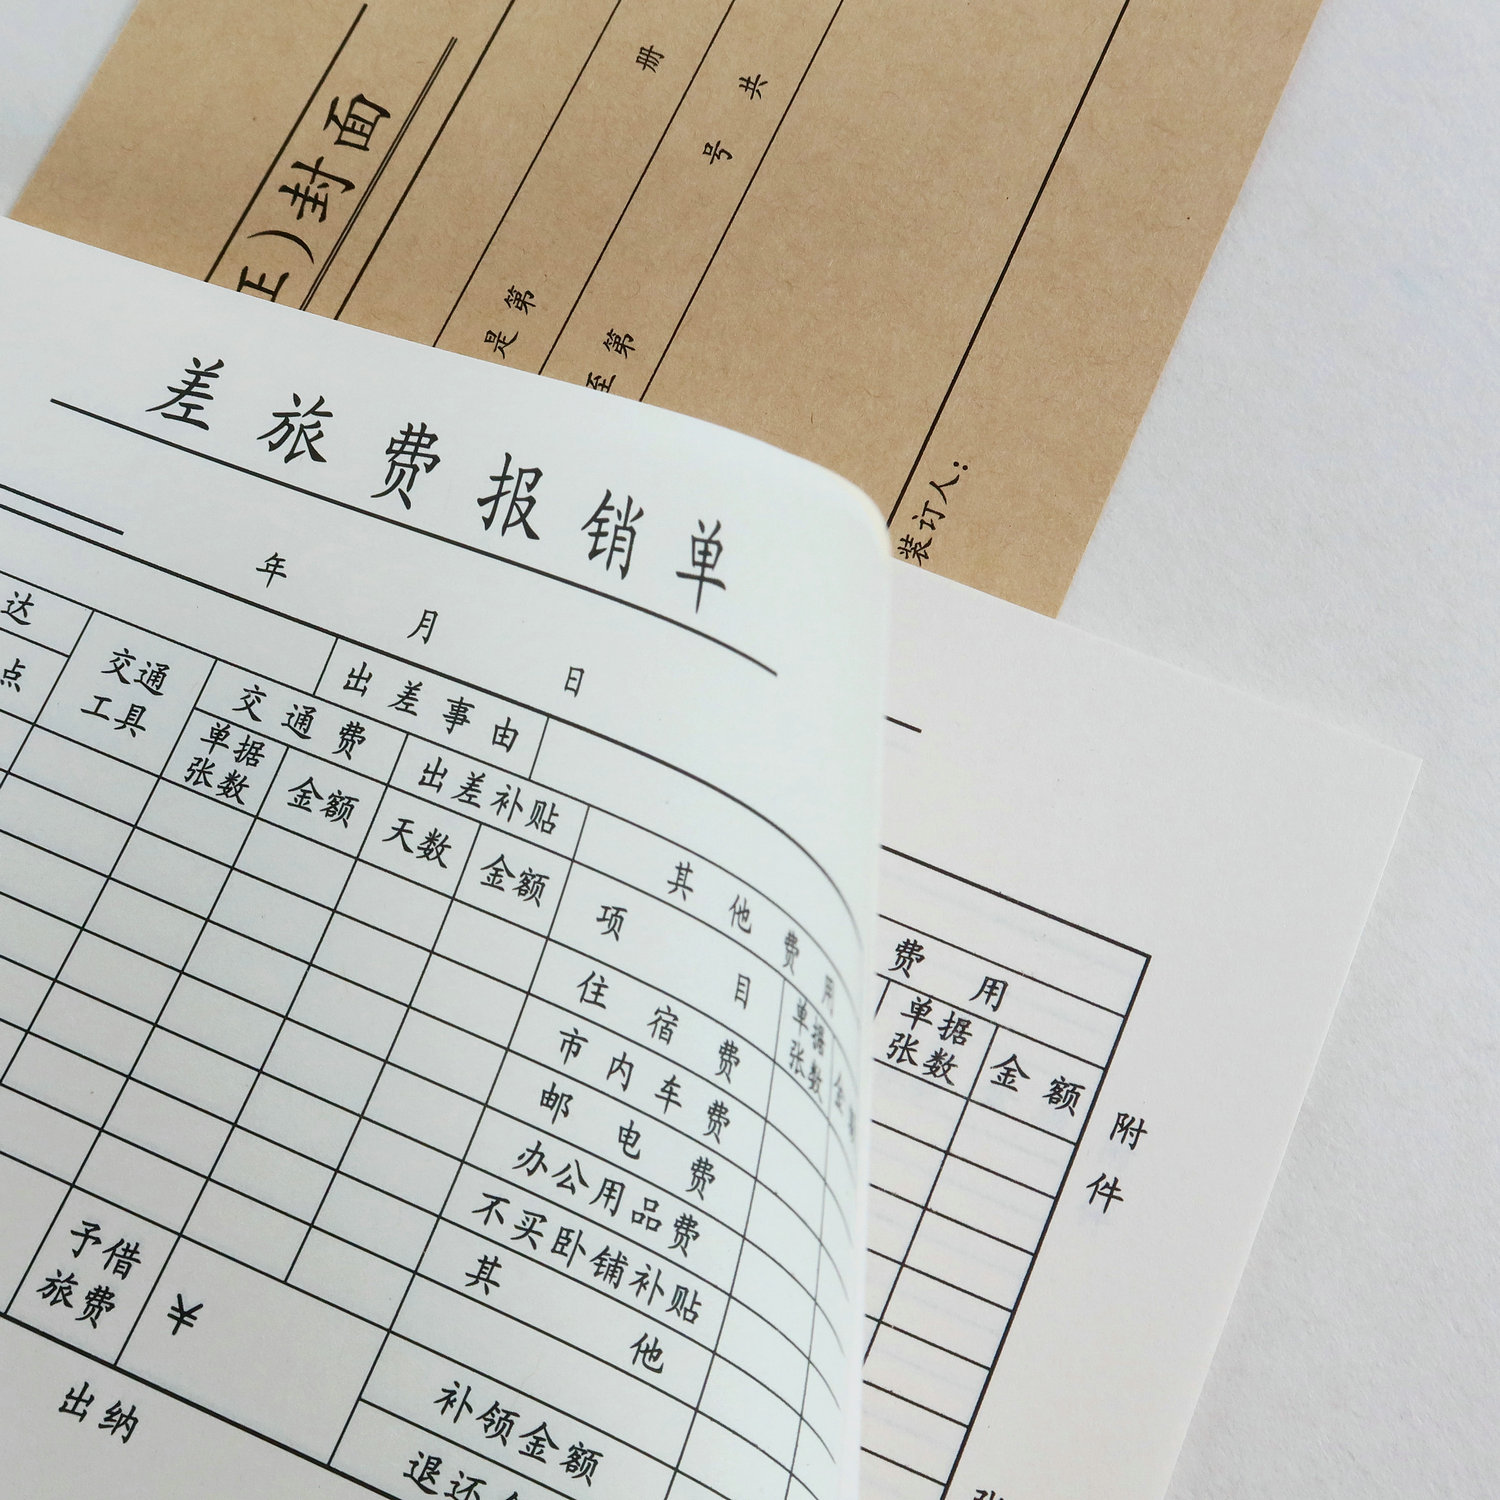 证)封面
册
号 共
是第
至第
装订人:
差旅费报销单
年 月 日
达
点
交通
工具
出差事由
交通费
单据
张数
金额
出差补贴
天数
金额
其他费用
项目
单据
张数
金额
住宿费
市内车费
邮电费
办公用品费
不买卧铺补贴
其他
予借
旅费
¥
补领金额
退还
出纳
费用
单据
张数
金额
附件
张